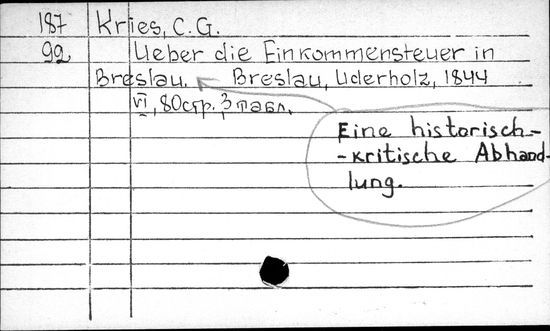 187 Kries, C. G.
92 Ueber die Einkommensteuer in
Breslau. Breslau, Uderholz, 1844
VI, 80стр. 3 табл.
Eine historisch-
-kritische Abhand-
lung.